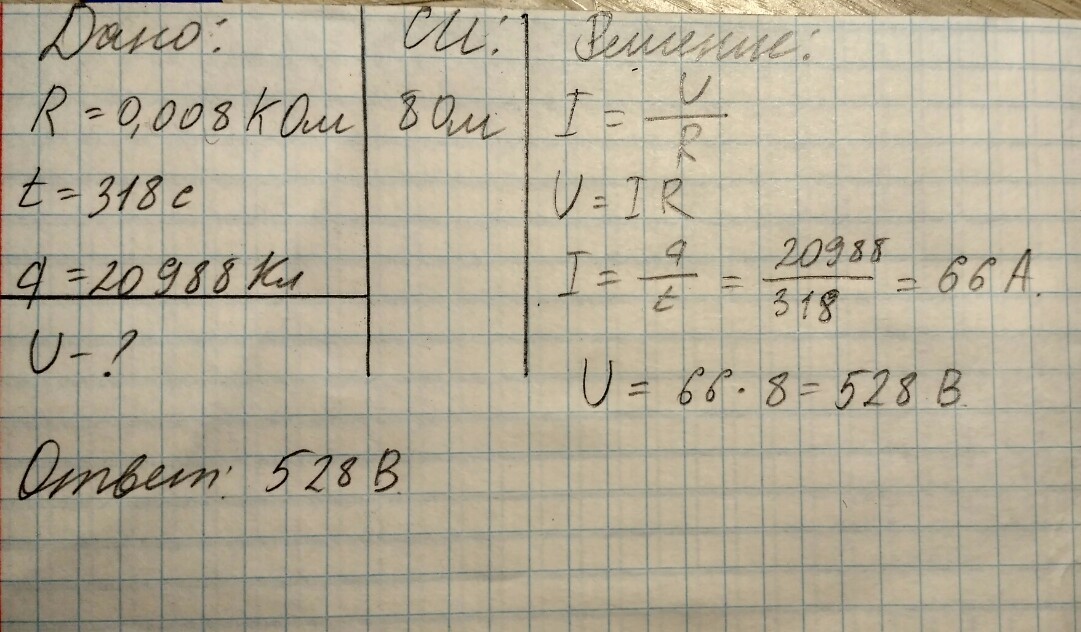 Дано:
R = 0,008 КОм
t = 318 с
q = 20988 Кл
U - ?
СИ:
8 Ом
Решение:
I = U/R
U = IR
I = q/t = 20988/318 = 66 А.
U = 66 · 8 = 528 В
Ответ: 528 В